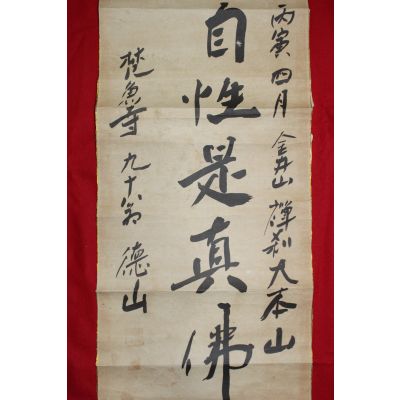 丙寅四月 金井山 禪刹大本山
自性是真佛
梵魚寺 九十翁 德山